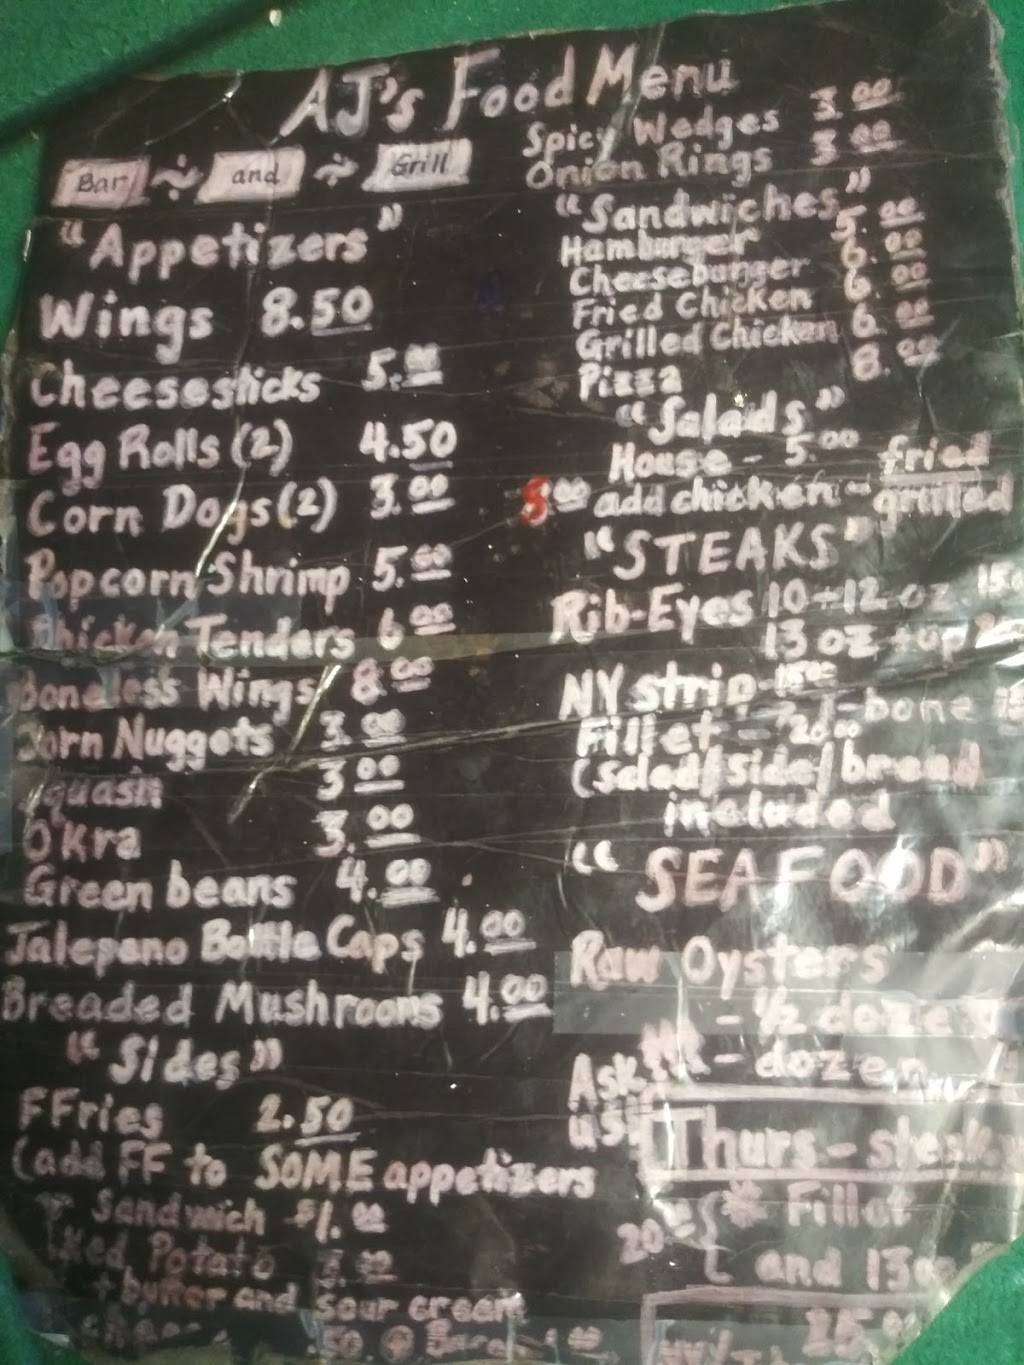 AJ's Food Menu
Bar and Grill
"Appetizers"
Wings 8.50
Cheesesticks 5.00
Egg Rolls (2) 4.50
Corn Dogs (2) 3.00
Popcorn Shrimp 5.00
Chicken Tenders 6.00
Boneless Wings 8.00
Corn Nuggets 3.00
Squash 3.00
O'Kra 3.00
Green beans 4.00
Jalepeno Bottle Caps 4.00
Breaded Mushrooms 4.00
"Sides"
FFries 2.50
(add FF to SOME appetizers
or Sandwich $1.00
Potato
+ butter and sour cream
Spicy Wedges 3.00
Onion Rings 3.00
"Sandwiches"
Hamburger 5.00
Cheeseburger 6.00
Fried Chicken 6.00
Grilled Chicken 6.00
Pizza 8.00
"Salads"
House - 5.00 fried
add chicken - grilled
"STEAKS"
Rib-Eyes 10-12 oz
13 oz + up
NY strip T-bone
Fillet - 20.00
(salad/side/bread
included
"SEAFOOD"
Raw Oysters
- 1/2 dozen
Ask - dozen
us!
Thurs - steak
20.00 * Fillet
and 13oz
25.00